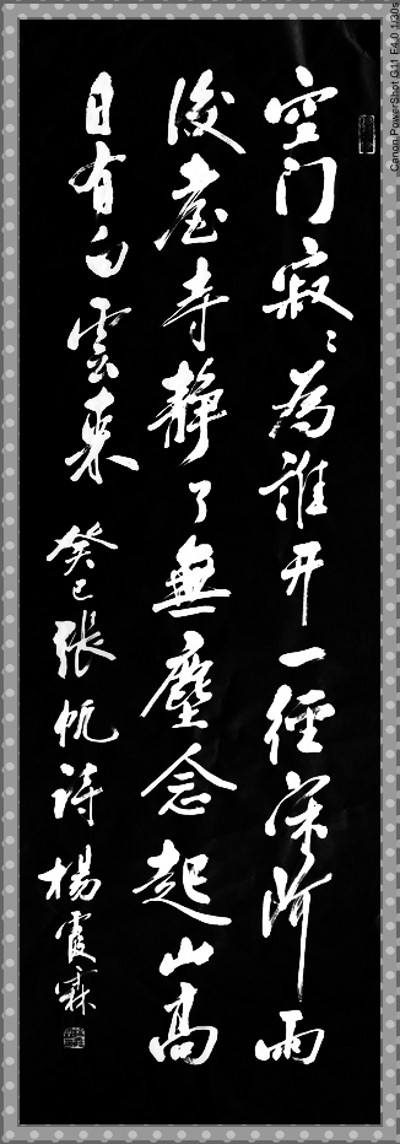 空门寂〻為誰开一徑宋阶雨
後臺寺靜了無塵念起山高
日有白雲来 癸巳張帆詩 楊霞霖
Canon PowerShot G11 F4.0 1/30s